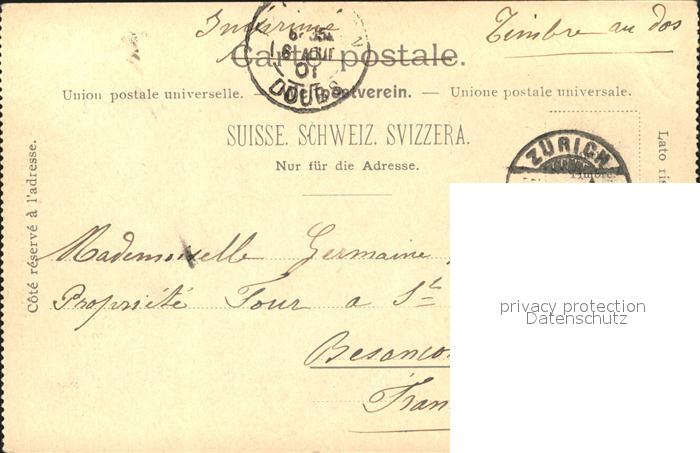 Imprimé
Timbre au dos
Carte postale.
6 35
6 AOUT
01
DOUBS
Union postale universelle. — Weltpostverein. — Unione postale universale.
SUISSE. SCHWEIZ. SVIZZERA.
Nur für die Adresse.
Côté réservé à l'adresse.
Lato ris
ZÜRICH
Timbre
Mademoiselle Germaine
Propriété Four a St
Besanço
Fran
privacy protection
Datenschutz